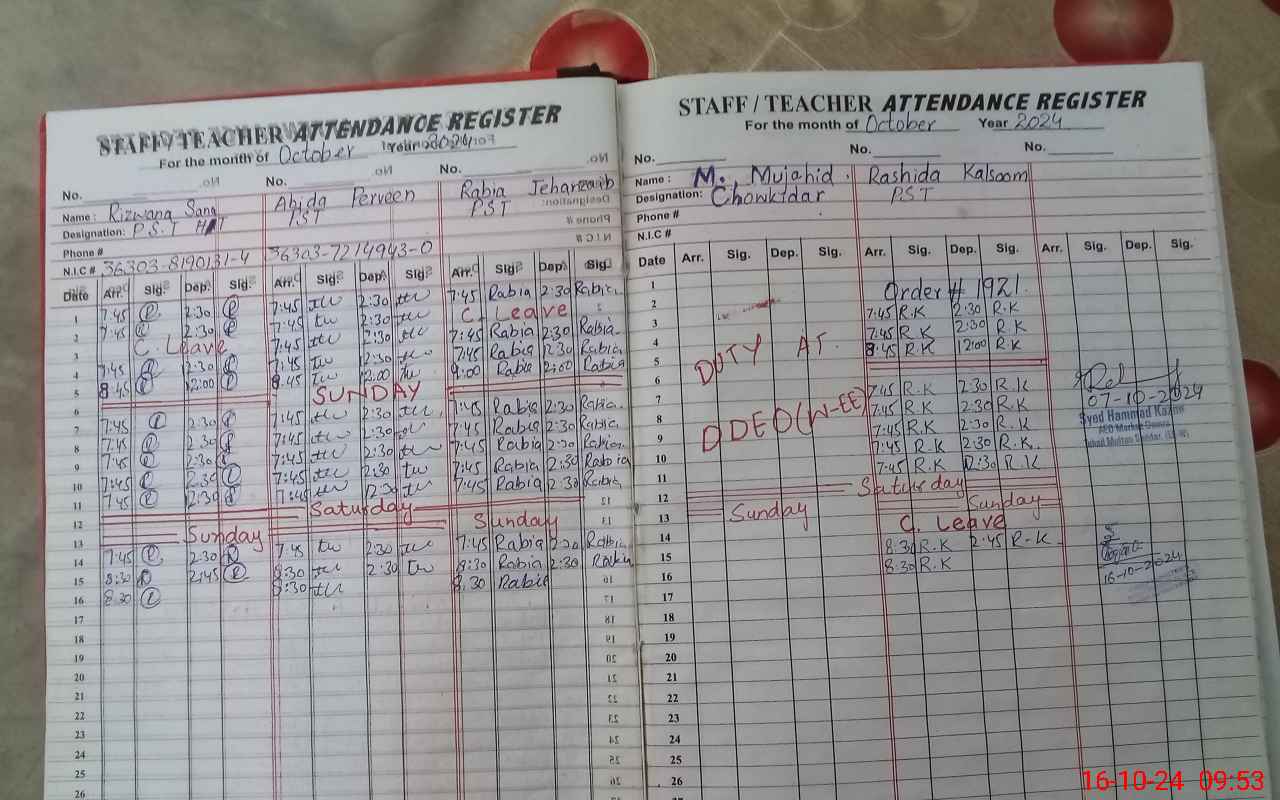 STAFF/TEACHER ATTENDANCE REGISTER
For the month of October Year 2024
No. No. No.
Name: Rizwana Sana Abida Perveen Rabia Jehanzaib
Designation: P.S.T PST PST
Phone #
N.I.C # 36303-8190131-4 36303-7214943-0
Date Arr. Sig. Dep. Sig. Arr. Sig. Dep. Sig. Arr. Sig. Dep. Sig.
1 7:45 2:30 7:45 2:30 7:45 Rabia 2:30 Rabia
2 7:45 2:30 7:45 2:30 C. Leave
3 C. Leave 7:45 2:30 7:45 Rabia 2:30 Rabia
4 7:45 2:30 7:45 2:30 7:45 Rabia 2:30 Rabia
5 8:45 12:00 8:45 12:00 Rabia Rabia
6 SUNDAY
7 7:45 2:30 7:45 2:30 7:45 Rabia 2:30 Rabia
8 7:45 2:30 7:45 2:30 7:45 Rabia 2:30 Rabia
9 7:45 2:30 7:45 2:30 7:45 Rabia 2:30 Rabia
10 7:45 2:30 7:45 2:30 7:45 Rabia 2:30 Rabia
11 7:45 2:30 7:45 2:30 7:45 Rabia 2:30 Rabia
12 Saturday
13 Sunday Sunday
14 7:45 2:30 7:45 2:30 7:45 Rabia 2:30 Rabia
15 8:30 2:45 8:30 2:30 8:30 Rabia 2:30 Rabia
16 8:30 8:30 8:30 Rabia
17
18
19
20
21
22
23
24
25
26
STAFF/TEACHER ATTENDANCE REGISTER
For the month of October Year 2024
No. No. No.
Name: M. Mujahid. Rashida Kalsoom
Designation: Chowkidar PST
Phone #
N.I.C #
Date Arr. Sig. Dep. Sig. Arr. Sig. Dep. Sig. Arr. Sig. Dep. Sig.
1 Order # 1921
2 7:45 R.K 2:30 R.K
3 7:45 R.K 2:30 R.K
4 8:45 R.K 12:00 R.K
5 DUTY AT.
6 7:45 R.K 2:30 R.K
7 7:45 R.K 2:30 R.K 07-10-2024
8 DDEO(W-EE) 7:45 R.K 2:30 R.K Syed Hammad
9 7:45 R.K 2:30 R.K
10 7:45 R.K 2:30 R.K
11 Saturday
12 Sunday
13 Sunday C. Leave
14 8:30 R.K 2:45 R.K
15 8:30 R.K
16 16-10-2024
17
18
19
20
21
22
23
24
25
26
16-10-24 09:53